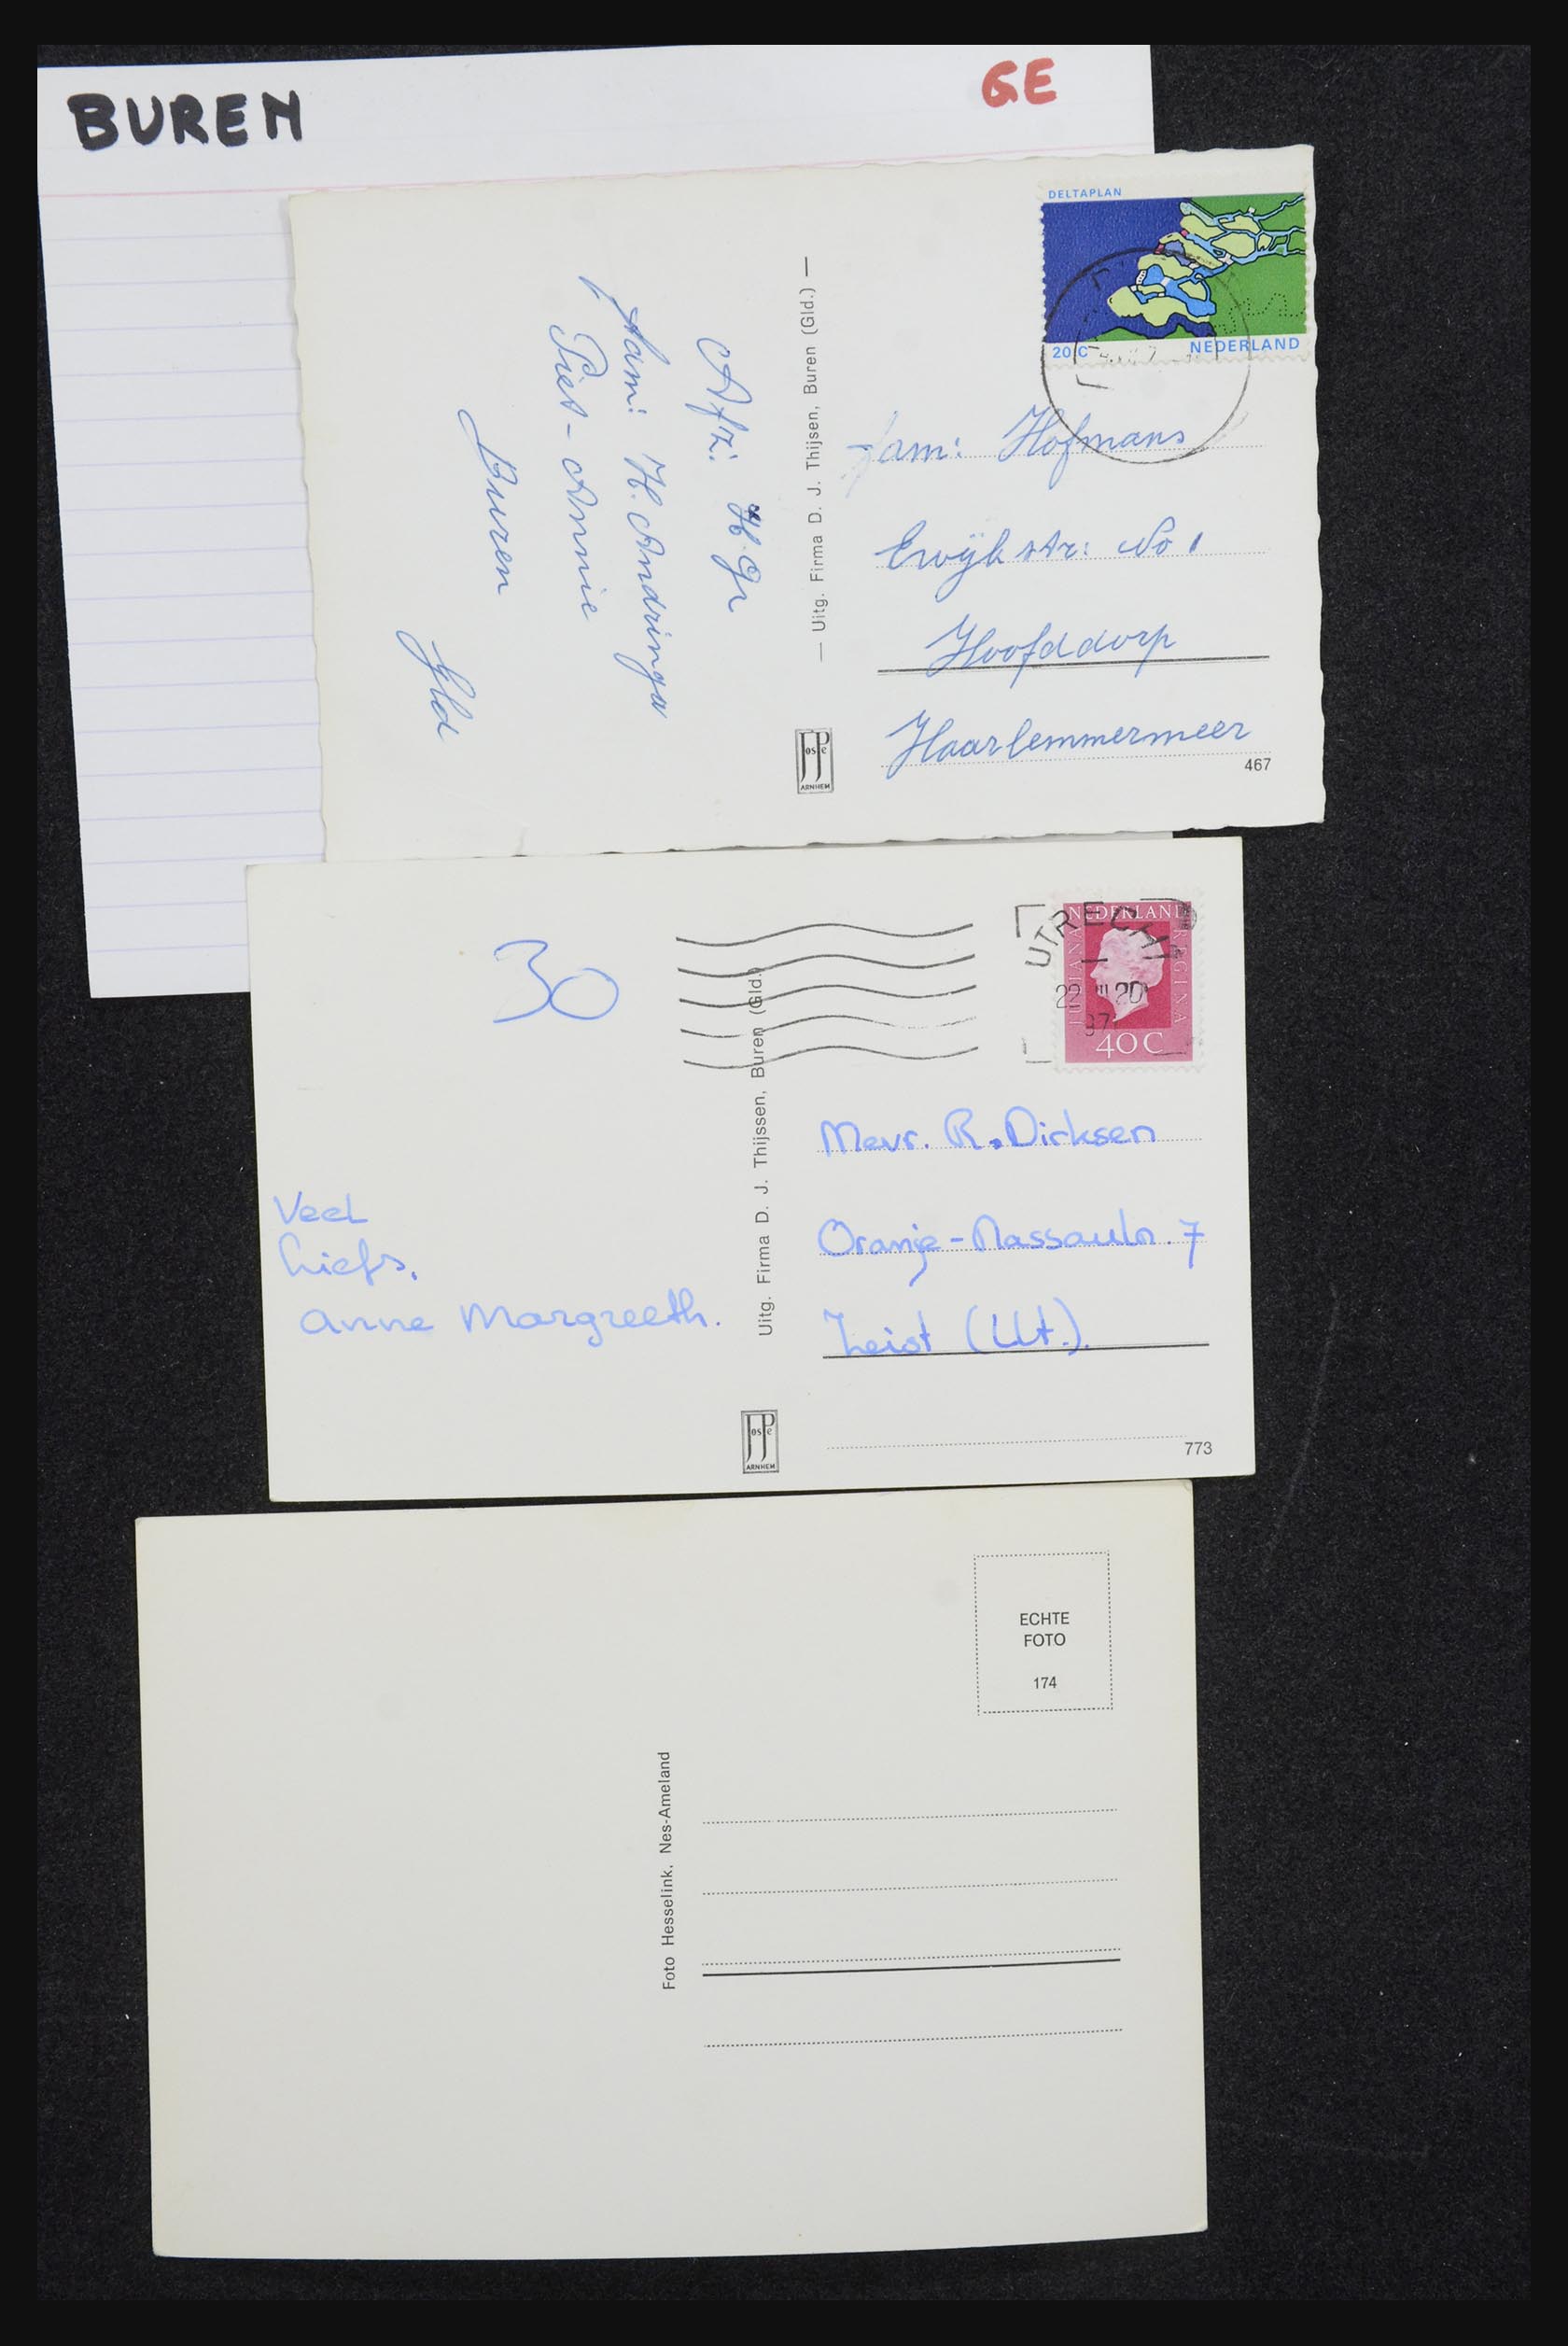 BUREN
GE
DELTAPLAN
20 C
NEDERLAND
Afz: H. Gr
fam: H. Andringa
Piet - Annie
Buren
Gld
— Uitg. Firma D. J. Thijsen, Buren (Gld.) —
JosPe
ARNHEM
fam: Hofmans
Ewijkstr: No 1
Hoofddorp
Haarlemmermeer
467
30
UTRECHT
22 III 20
197
NEDERLAND
JULIANA
REGINA
40 C
Veel
liefs.
Anne Margreeth.
Uitg. Firma D. J. Thijssen, Buren (Gld.)
JosPe
ARNHEM
Mevr. R. Dirksen
Oranje-Nassauln. 7
Zeist (Ut.).
773
ECHTE
FOTO
174
Foto Hesselink, Nes-Ameland